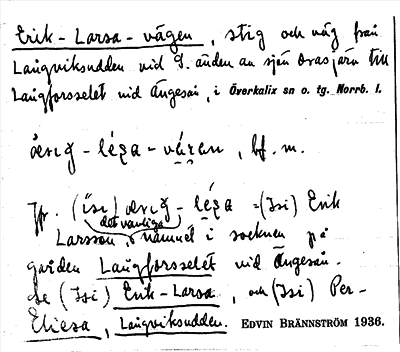 Erik-Larsa-vägen, stig och väg från
Långviksudden vid S. änden av sjön Övasjärv till
Långforsselet vid Ängesån, i Överkalix sn o. tg. Norrb. l.
, bf. m.
Jfr. (Isi) = (Isi) Erik
det vanliga
Larsson, namnet i socknen på
gården Långforsselet vid Ängesån.
Se (Isi) Erik-Larsa, och (Isi) Per-
Eliesa, Långviksudden. EDVIN BRÄNNSTRÖM 1936.